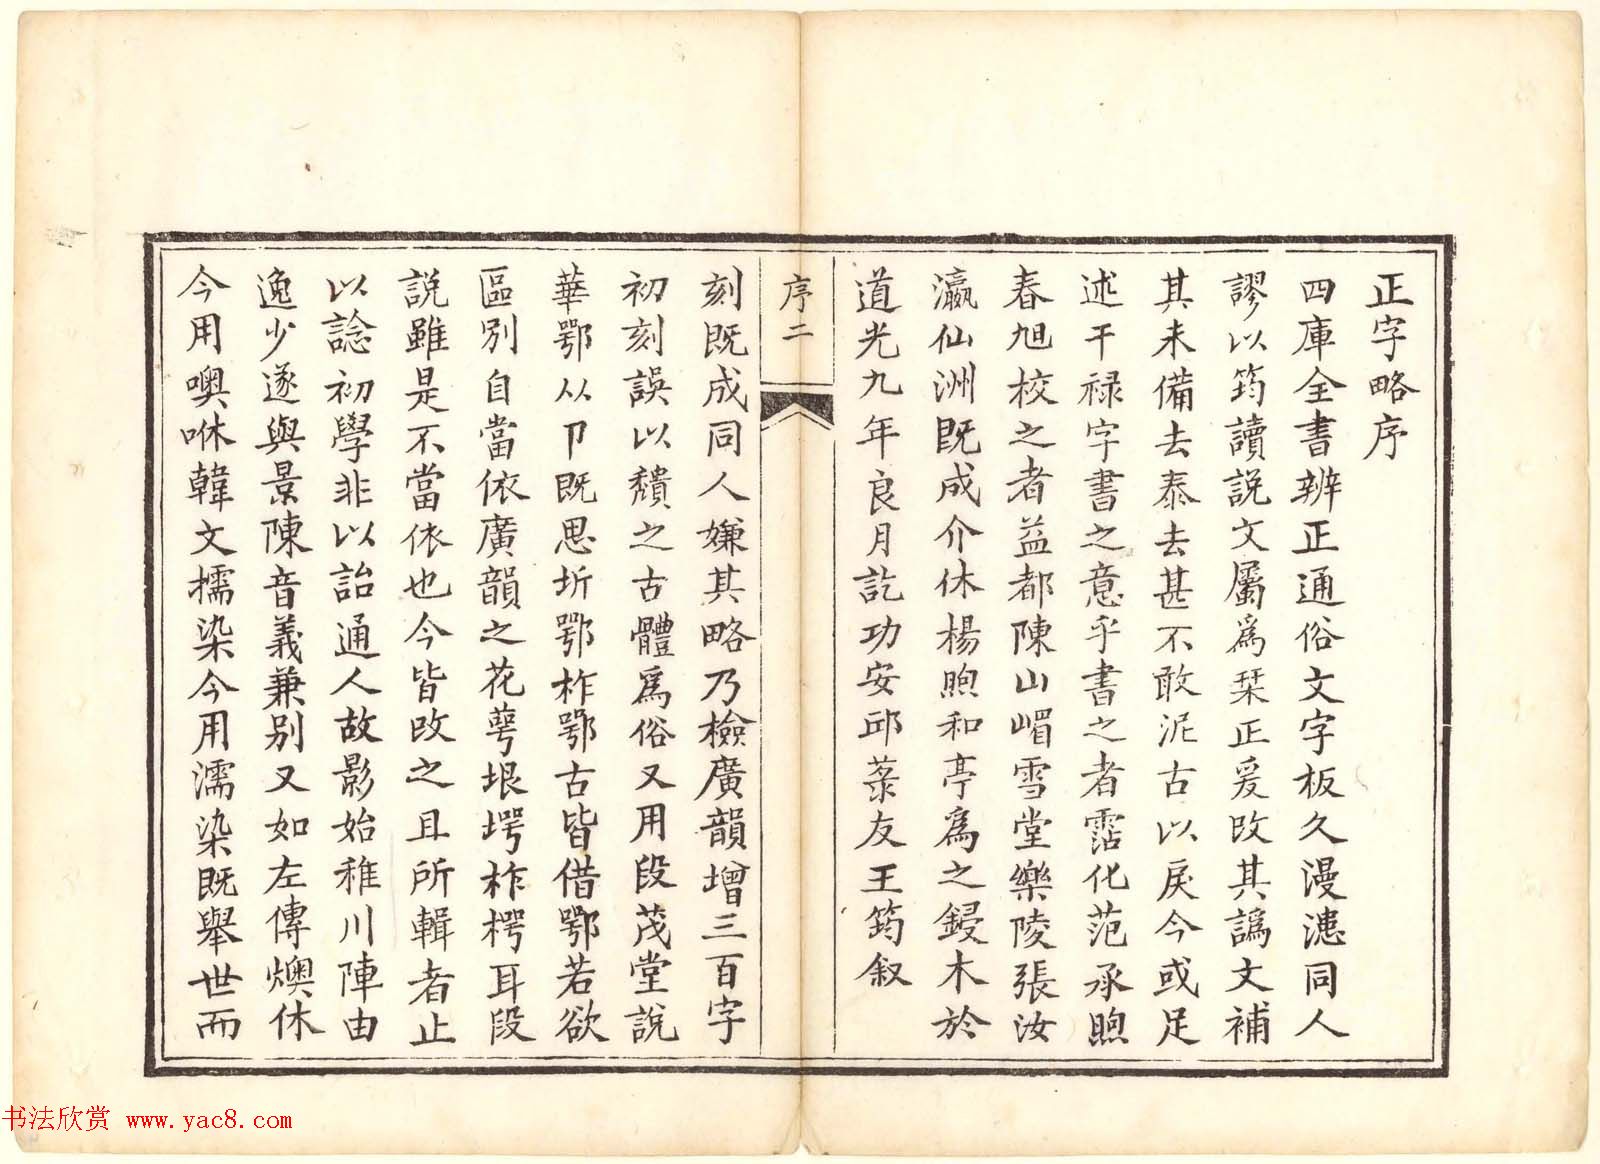 正字略序
四庫全書辨正通俗文字板久漫漶同人
謬以筠讀說文屬爲栞正爰改其譌文補
其未備去泰去甚不敢泥古以戾今或足
述干禄字書之意乎書之者霑化范承煦
春旭校之者益都陳山嵋雪堂樂陵張汝
瀛仙洲既成介休楊煦和亭爲之鋟木於
道光九年良月訖功安邱菉友王筠叙
序二
刻既成同人嫌其略乃檢廣韻增三百字
初刻誤以穨之古體爲俗又用段茂堂說
華鄂从卩既思圻鄂柞鄂古皆借鄂若欲
區別自當依廣韻之花萼垠堮柞樗耳段
說雖是不當依也今皆改之且所輯者止
以諗初學非以詒通人故影始稚川陣由
逸少遂與景陳音義兼别又如左傳燠休
今用噢咻韓文擩染今用濡染既舉世而
书法欣赏 www.yac8.com